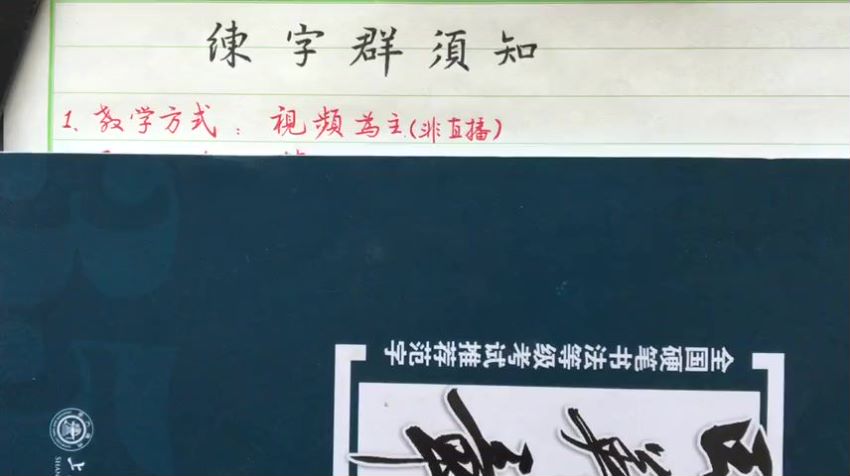 練字群須知
1、教学方式：視頻為主(非直播)
全国硬笔书法等级考试推荐范字